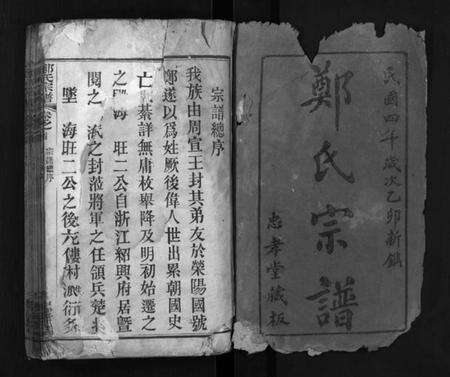 民國四年歲次乙卯新鐫
鄭氏宗譜
忠孝堂藏板
宗譜總序
我族由周宣王封其弟友於滎陽國號
鄭遂以為姓厥後偉人世出累朝國史
亡綦詳無庸枚舉降及明初始遷之
之海旺二公自浙江紹興府居暨
閱之之封蒞將軍之任領兵楚
墜海旺二公之後充僂村衍
宗譜總序